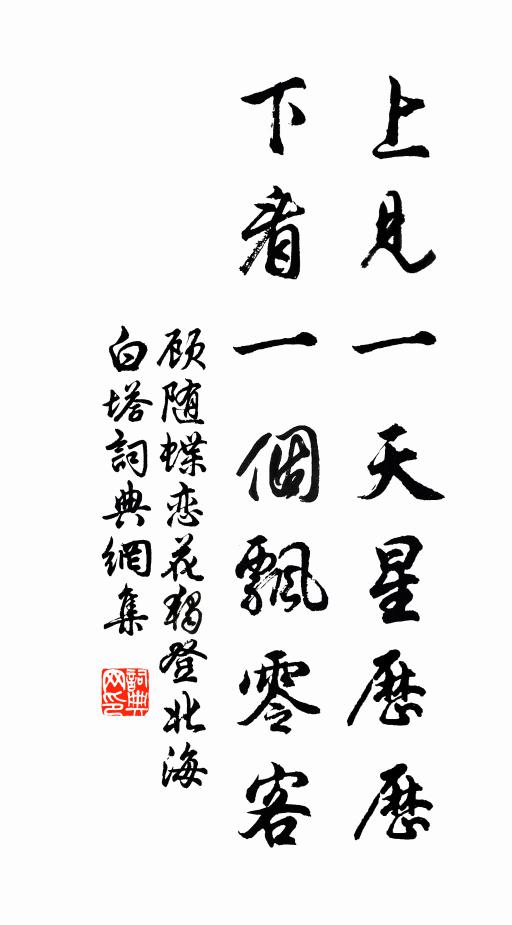 上見一天星歷歷
下看一個飄零客
顾随蝶恋花獨登北海
白塔詞典網集
詞典
网印